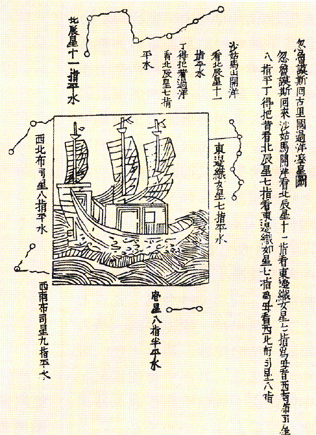 忽魯謨斯回古里國過洋牽星圖
忽魯謨斯回來沙姑馬開洋看北辰星十一指看東邊織女星七指為母看西南布司星
八指平丁得把昔看北辰星七指看東邊織女星七指為母看西北布司星八指
沙姑馬山開洋
看北辰星十一
指平水
丁得把昔過洋
看北辰星七指
平水
北辰星十一指平水
東邊織女星七指平水
西北布司星八指平水
星八指半平水
西南布司星九指平水